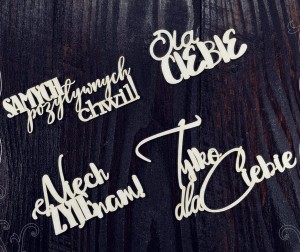 Dla
CIEBIE
SAMYCH
pozytywnych
chwil!
Niech
ŻYJE nam!
Tylko
dla Ciebie